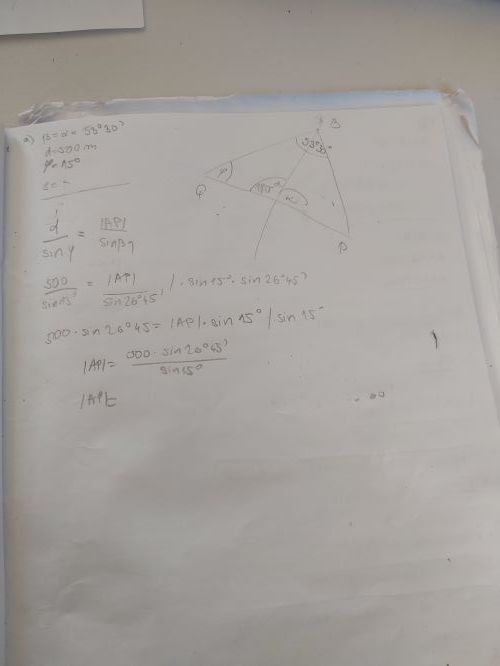 a) β = α = 53°30'
d=500 m
φ=15°
B
53°30'
φ
180°
α
P
d/sin φ = |AP|/sin β1
500/sin15° = |AP|/sin26°45' / · sin15° · sin 26°45'
500 · sin 26°45' = |AP| · sin 15° / sin 15°
|AP| = 500 · sin 26°45'/sin15°
|AP|=